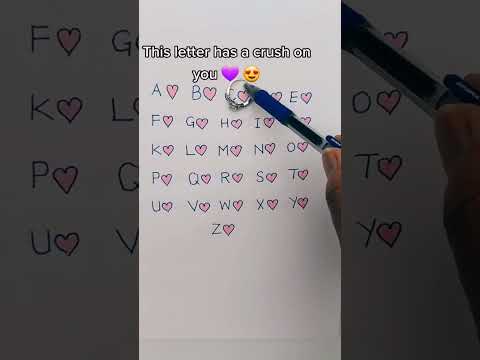 This letter has a crush on
you 💜 😍
A B E
F G H I
K L M N O
P Q R S T
U V W X Y
Z